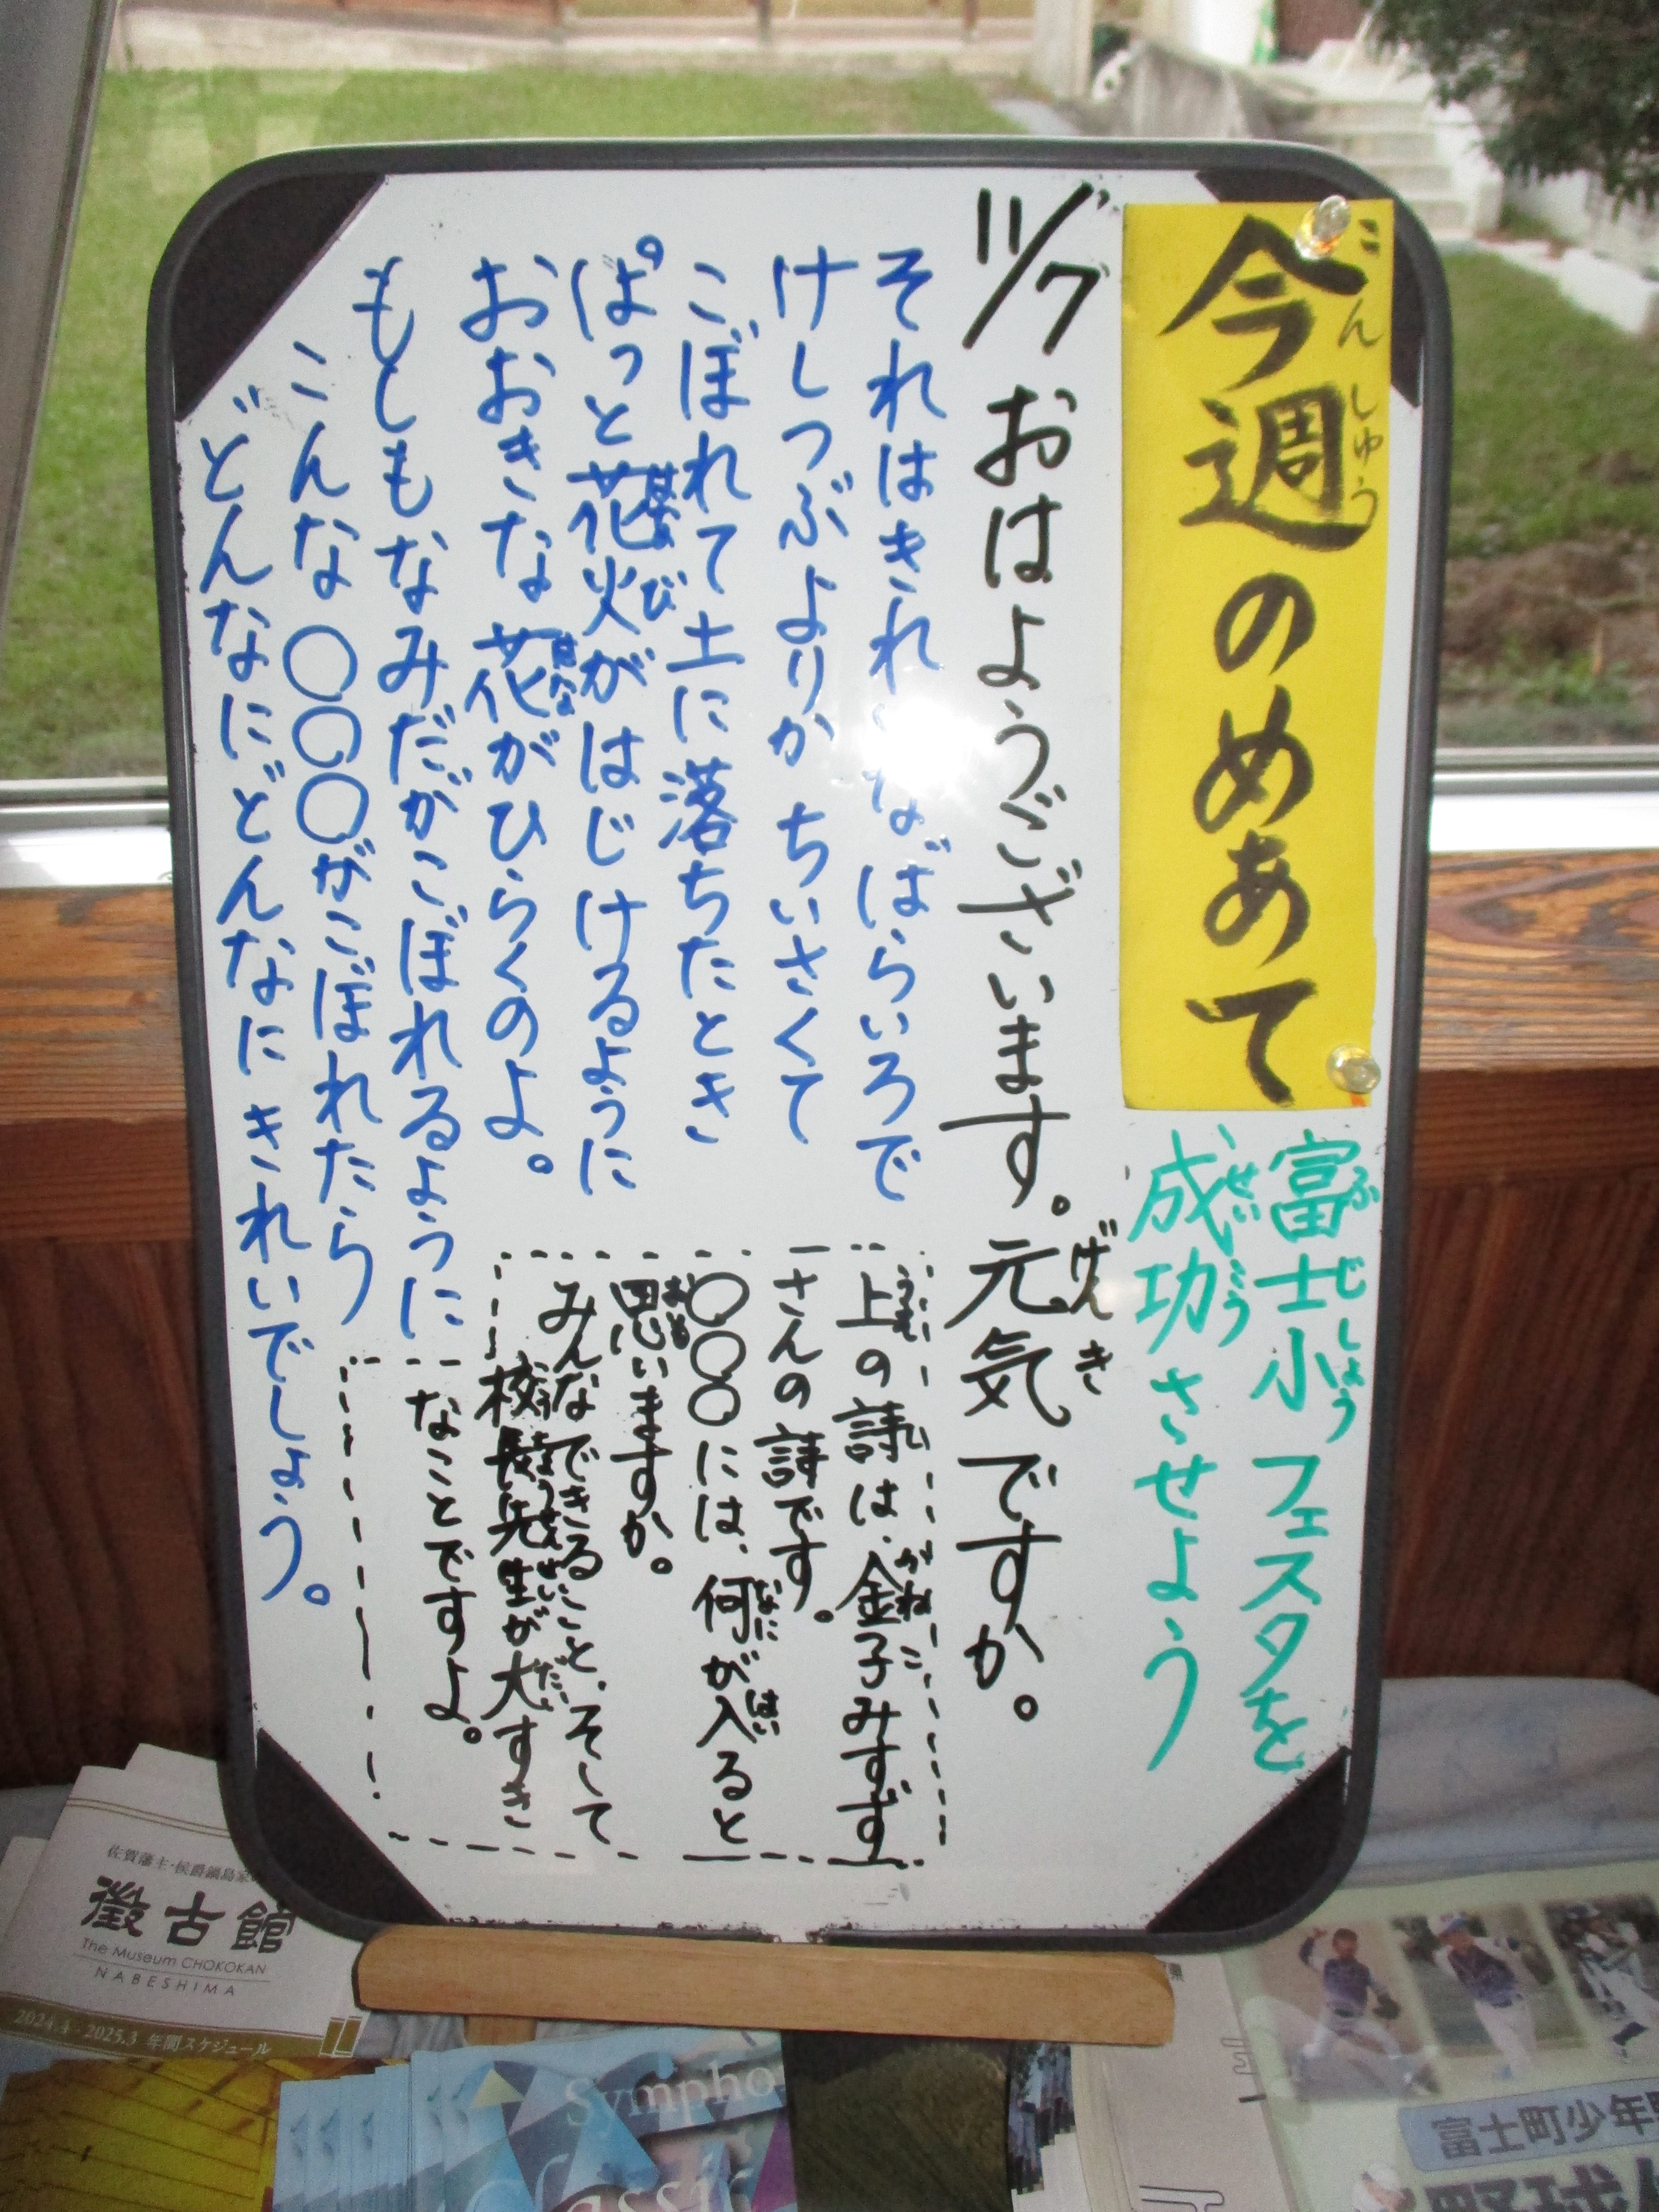 今週のめあて
こんしゅう
富士小フェスタを
ふじしょう
成功させよう
せいこう
11/7 おはようございます。元気ですか。
げんき
それはきれいなばらいろで
けしつぶよりかちいさくて
こぼれて土に落ちたとき
ぱっと花火がはじけるように
はなび
おおきな花がひらくのよ。
はな
もしもなみだがこぼれるように
こんな○○○がこぼれたら
どんなにどんなにきれいでしょう。
上の詩は、金子みすず
うえ し かねこ
さんの詩です。
○○○には、何が入ると
なに はい
思いますか。
おも
みんなできること、そして
校長先生が大すき
こうちょうせんせい だい
なことですよ。
佐賀藩主・侯爵鍋島家
徴古館
The Museum CHOKOKAN
NABESHIMA
2024.4-2025.3 年間スケジュール
Sympho
Classic
富士町少年野
野球